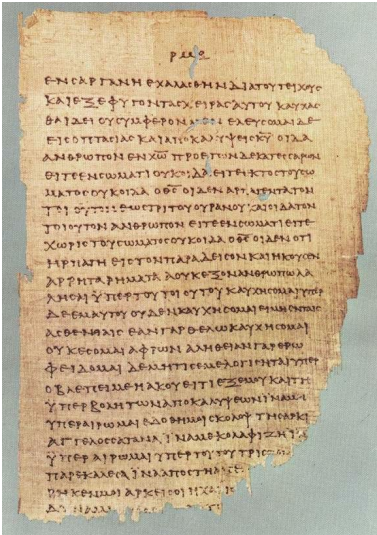 ρμθ
ενϲαργανηεχαλαϲθηνδιατουτειχουϲ
καιεξεφυγονταϲχειραϲαυτουκαυχαϲ
θαιδειουϲυμφερονμενελευϲομαιδε
ειϲοπταϲιαϲκαιαποκαλυψειϲκ̅υ̅οιδα
ανθρωπονενχ̅ω̅προετωνδεκατεϲϲαρων
ειτεενϲωματιουκοιδαειτεεκτοϲτουϲω
ματοϲουκοιδαοθ̅ϲ̅οιδεναρπαγεντατον
τοιουτονεωϲτριτουουρανουκαιοιδατον
τοιουτονανθρωπονειτεενϲωματιειτε
χωριϲτουϲωματοϲουκοιδαοθ̅ϲ̅οιδενοτι
ηρπαγηειϲτονπαραδειϲονκαιηκουϲεν
αρρηταρηματααουκεξονανθρωπωλα
ληϲαιϋπερτουτοιουτουκαυχηϲομαιυπερ
δεεμαυτουουδενκαυχηϲομαιειμηενταιϲ
αϲθενειαιϲεανγαρθελωκαυχηϲομαι
ουκεϲομαιαφρωναληθειανγαρερω
φειδομαιδεμητιϲεμελογιϲηταιϋπερ
οβλεπειμεηακουειτιεξεμουκαιτη
ϋπερβολητωναποκαλυψεωνϊναμη
υπεραιρωμαιεδοθημοιϲκολοψτηϲαρκι
αγγελοϲϲαταναϊναμεκολαφιζηϊνα
ϋπεραιρωμαιυπερτουτουτριϲ
παρεκαλεϲαϊνααποϲτη
ρηκενμοιαρκειϲοιηχαριϲ